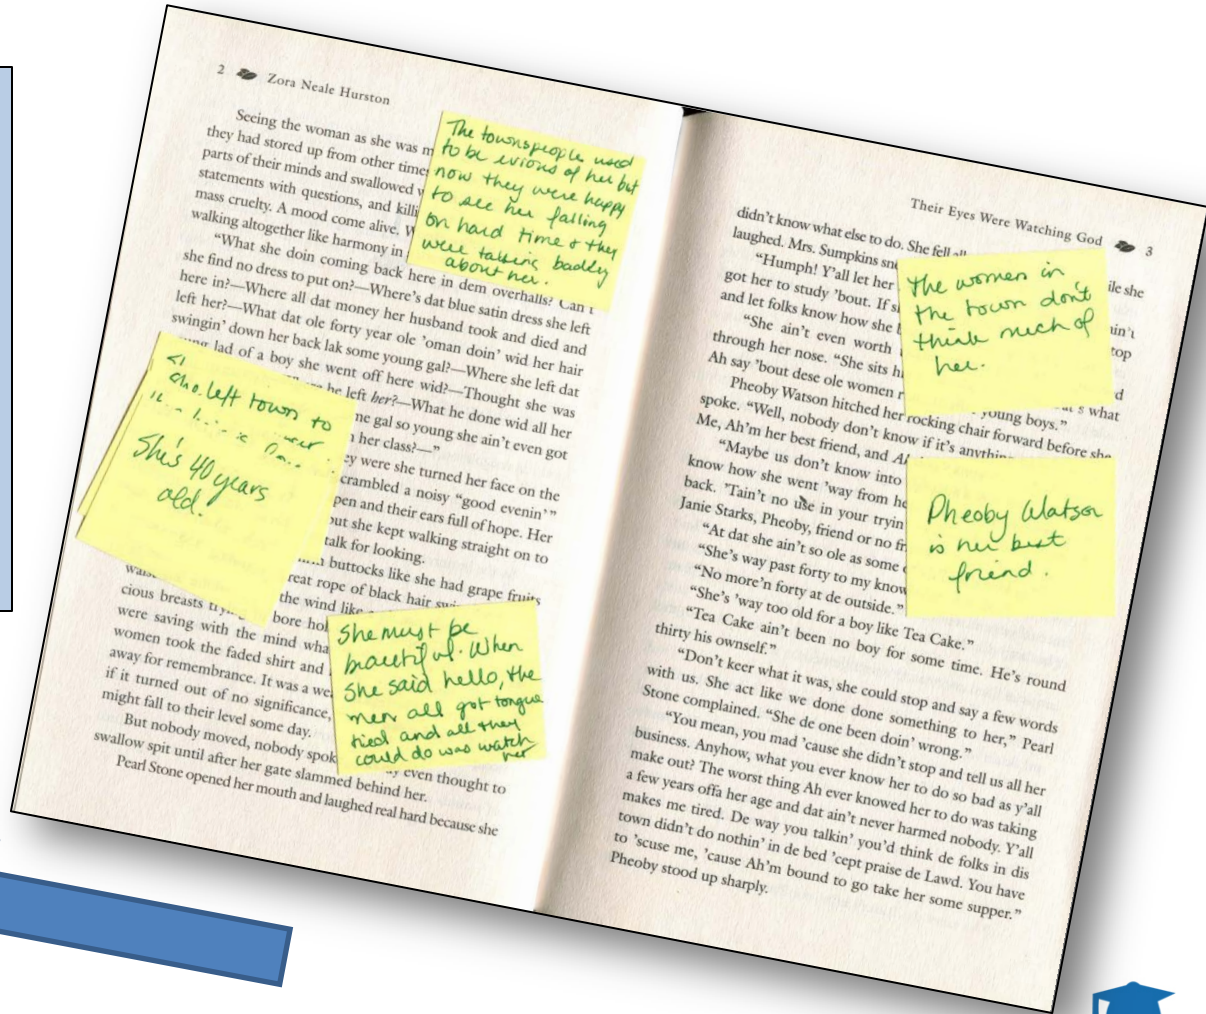 2 Zora Neale Hurston
Seeing the woman as she was m
they had stored up from other times
parts of their minds and swallowed
statements with questions, and killi
mass cruelty. A mood come alive. W
walking altogether like harmony in
“What she doin coming back here in dem overhalls? Can’t
she find no dress to put on?—Where’s dat blue satin dress she left
here in?—Where all dat money her husband took and died and
left her?—What dat ole forty year ole ’oman doin’ wid her hair
swingin’ down her back lak some young gal?—Where she left dat
lad of a boy she went off here wid?—Thought she was
he left her?—What he done wid all her
ne gal so young she ain’t even got
her class?—”
ey were she turned her face on the
crambled a noisy “good evenin’”
pen and their ears full of hope. Her
but she kept walking straight on to
talk for looking.
buttocks like she had grape fruits
reat rope of black hair
the wind like
cious breasts bore
were saving with the mind wha
women took the faded shirt and
away for remembrance. It was a we
if it turned out of no significance,
might fall to their level some day.
But nobody moved, nobody spok y even thought to
swallow spit until after her gate slammed behind her.
Pearl Stone opened her mouth and laughed real hard because she
The townspeople used
to be evious of her but
now they were happy
to see her falling
on hard time & they
were talking badly
about her.
She left town to
She’s 40 years
old.
She must be
beautiful. When
She said hello, the
men all got tongue
tied and all they
could do was watch
her
Their Eyes Were Watching God 3
didn’t know what else to do. She fell all ile she
laughed. Mrs. Sumpkins sn
“Humph! Y’all let her ain’t
got her to study ’bout. If s top
and let folks know how she b
“She ain’t even worth
through her nose. “She sits h d
Ah say ’bout dese ole women r what
young boys.”
Pheoby Watson hitched her rocking chair forward before she
spoke. “Well, nobody don’t know if it’s anythin
Me, Ah’m her best friend, and Ah
“Maybe us don’t know into
know how she went ’way from he
back. ’Tain’t no use in your tryin
Janie Starks, Pheoby, friend or no fr
“At dat she ain’t so ole as some
“She’s way past forty to my know
“No more’n forty at de outside.”
“She’s ’way too old for a boy like Tea Cake.”
“Tea Cake ain’t been no boy for some time. He’s round
thirty his ownself.”
“Don’t keer what it was, she could stop and say a few words
with us. She act like we done done something to her,” Pearl
Stone complained. “She de one been doin’ wrong.”
“You mean, you mad ’cause she didn’t stop and tell us all her
business. Anyhow, what you ever know her to do so bad as y’all
make out? The worst thing Ah ever knowed her to do was taking
a few years offa her age and dat ain’t never harmed nobody. Y’all
makes me tired. De way you talkin’ you’d think de folks in dis
town didn’t do nothin’ in de bed ’cept praise de Lawd. You have
to ’scuse me, ’cause Ah’m bound to go take her some supper.”
Pheoby stood up sharply.
The women in
the town don’t
think much of
her.
Pheoby Watson
is her best
friend.